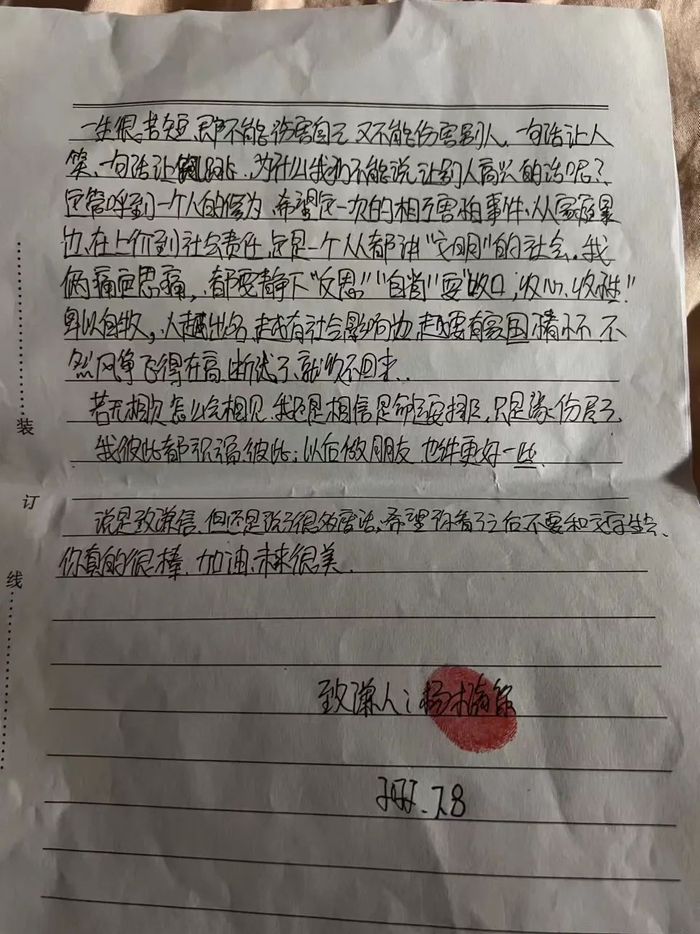 一生很苦短,即不能伤害自己 又不能伤害别人,一句话让人
笑、一句话让人跳,为什么我们不能说让别人高兴的话呢?
尽管呼到一个人的修为、希望这一次的相互害怕事件、从家庭暴
边、在上价到社会责任,总是一个人都讲“文明”的社会、我
俩痛定思痛,都要静下“反思”“自省”要“收口,收心、收性”
卑以自牧,人越出名 越有社会影响边 越要有家国情怀 不
然风争飞得在高,断线了、就收不回来、
若无相欠 怎么会相见、我还是相信是命运安排,只是缘份尽了,
我彼此都祝福彼此;以后做朋友 也许更好一些、
说是致谦信,但还是说了很多废话,希望你看了之后不要和文字生气、
你真的很棒、加油、未来很美、
致谦人:
7.8
装
订
线